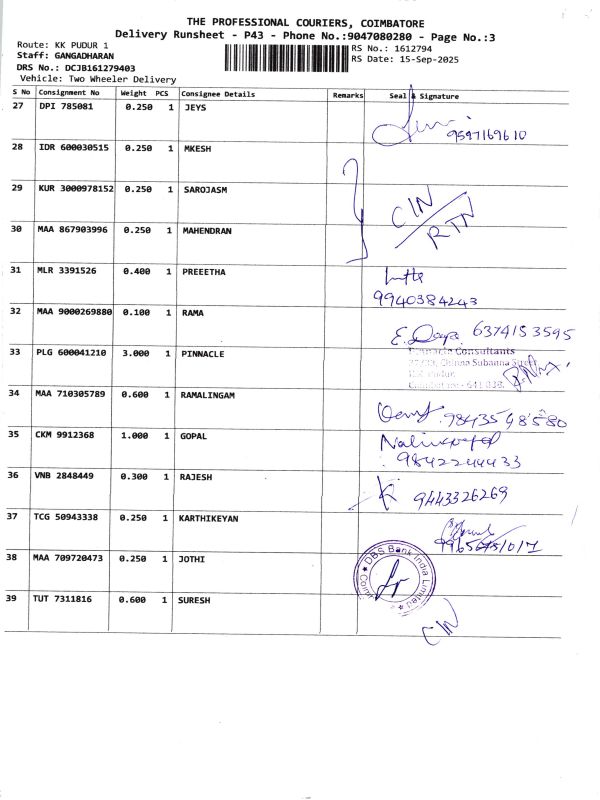 THE PROFESSIONAL COURIERS, COIMBATORE
Delivery Runsheet - P43 - Phone No.:9047080280 - Page No.:3
Route: KK PUDUR 1
RS No.: 1612794
Staff: GANGADHARAN
RS Date: 15-Sep-2025
DRS No.: DCJB161279403
Vehicle: Two Wheeler Delivery
S No Consignment No Weight PCS Consignee Details Remarks Seal & Signature
27 DPI 785081 0.250 1 JEYS
9597169610
28 IDR 600030515 0.250 1 MKESH
29 KUR 3000978152 0.250 1 SAROJASM
CIN
RTN
30 MAA 867903996 0.250 1 MAHENDRAN
31 MLR 3391526 0.400 1 PREEETHA
9940384243
32 MAA 9000269880 0.100 1 RAMA
6374153595
33 PLG 600041210 3.000 1 PINNACLE
Pinnacle Consultants
Subanna Street
Coimbatore - 641 038.
34 MAA 710305789 0.600 1 RAMALINGAM
35 CKM 9912368 1.000 1 GOPAL
9842244433
36 VNB 2848449 0.300 1 RAJESH
9443326269
37 TCG 50943338 0.250 1 KARTHIKEYAN
38 MAA 709720473 0.250 1 JOTHI
DBS Bank India Limited
39 TUT 7311816 0.600 1 SURESH
CIN